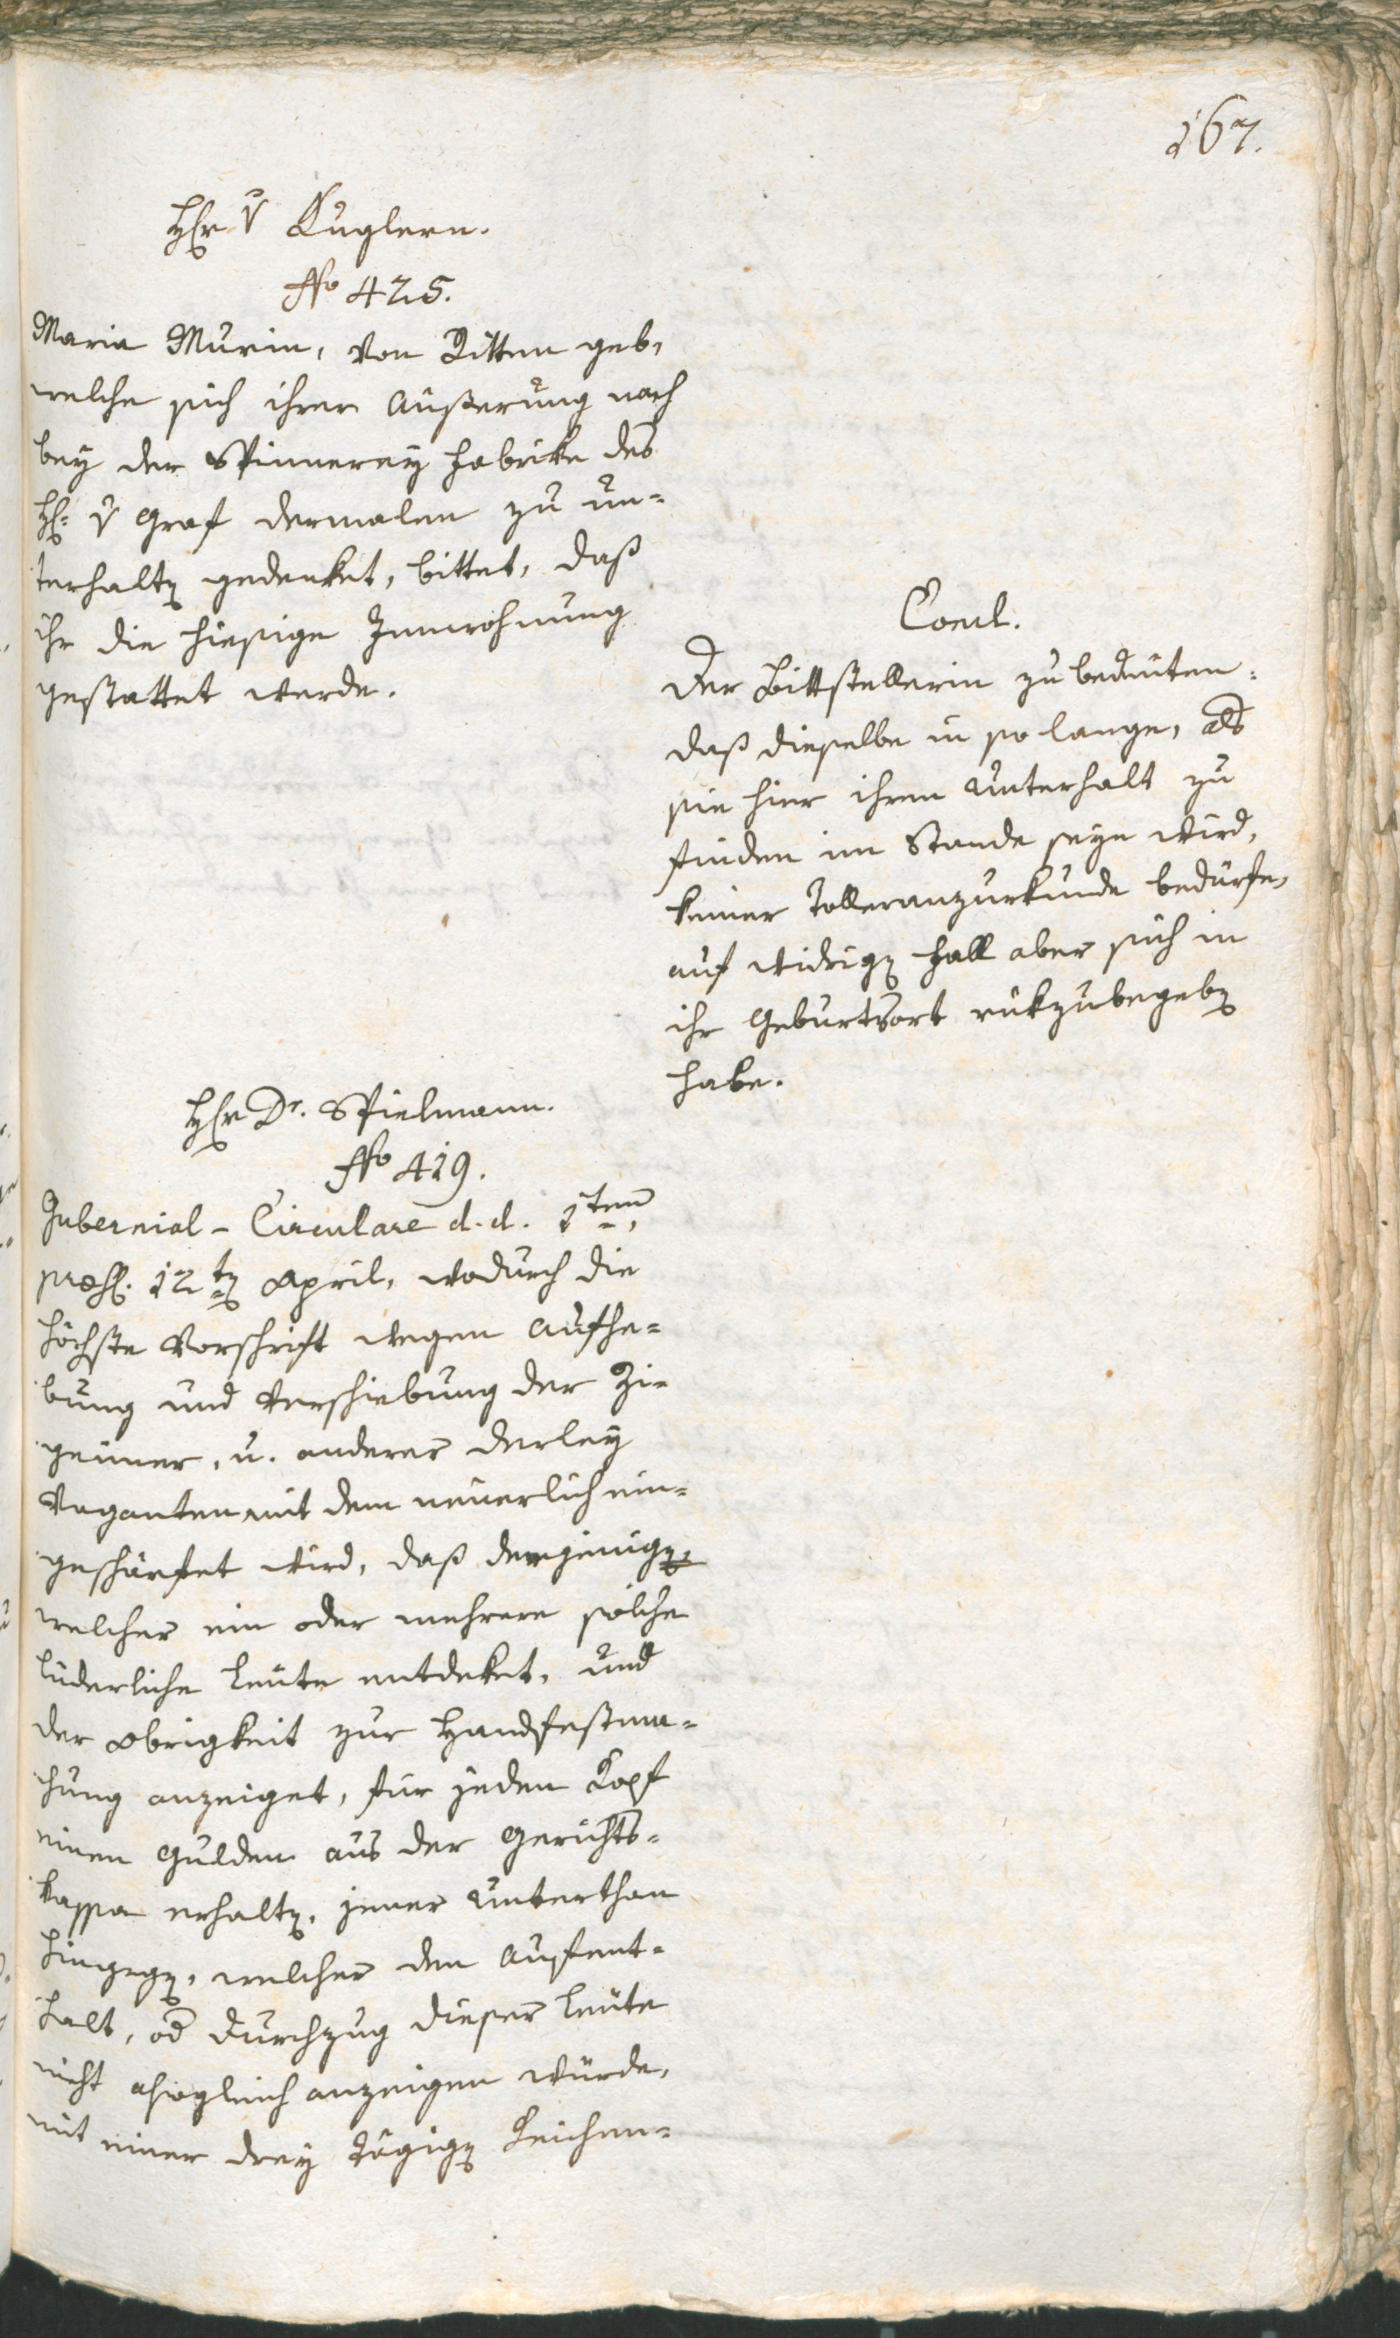 167.
Hr v Kuglern.
No 425.
Maria Murin, von Ritten geb,
welche sich ihrer Äußerung nach
bey der Spinnerey Fabrike des
H: v Graf dermalen zu un-
terhalten gedenket, bittet, daß
ihr die hiesige Innwohnung
gestattet werde.
Concl.
Der Bittstellerin zu bedeuten:
daß dieselbe in so lange, als
sie hier ihren Unterhalt zu
finden im Stande seyn wird,
keiner Tolleranzurkunde bedürfe,
auf widrigen Fall aber sich in
ihr Geburtsort rükzubegeben
habe.
Hr Dr. Spielmann.
No 419.
Gubernial-Circulare d. d. 1ten,
præs. 12ten April, wodurch die
höchste Vorschrift wegen Aufhe-
bung und Verschiebung der Zi-
geiner, u. anderer derley
Vaganten mit dem neuerlich ein-
geschärfet wird, daß derjenige,
welcher ein oder mehrere solche
lüderliche Leute entdeket, und
der Obrigkeit zur Handfestma-
chung anzeiget, für jeden Kopf
einen Gulden aus der Gerichts-
kassa erhalten, jener Unterthan
hingegen, welcher den Aufent-
halt, od Durchzug dieser Leute
nicht alsogleich anzeigen würde,
mit einer drey tägigen Keichen-